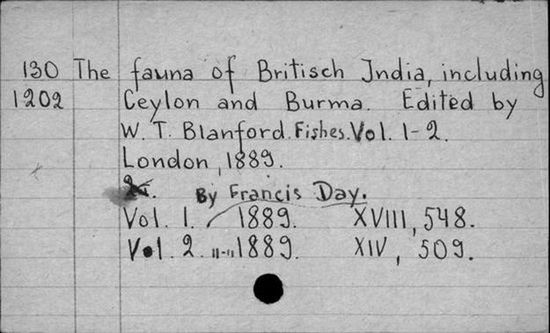 130 The fauna of Britisch India, including
1202 Ceylon and Burma. Edited by
W. T. Blanford. Fishes. Vol. 1-2.
London, 1889.
By Francis Day.
Vol. 1. 1889. XVIII, 548.
Vol. 2. "-" 1889. XIV, 509.